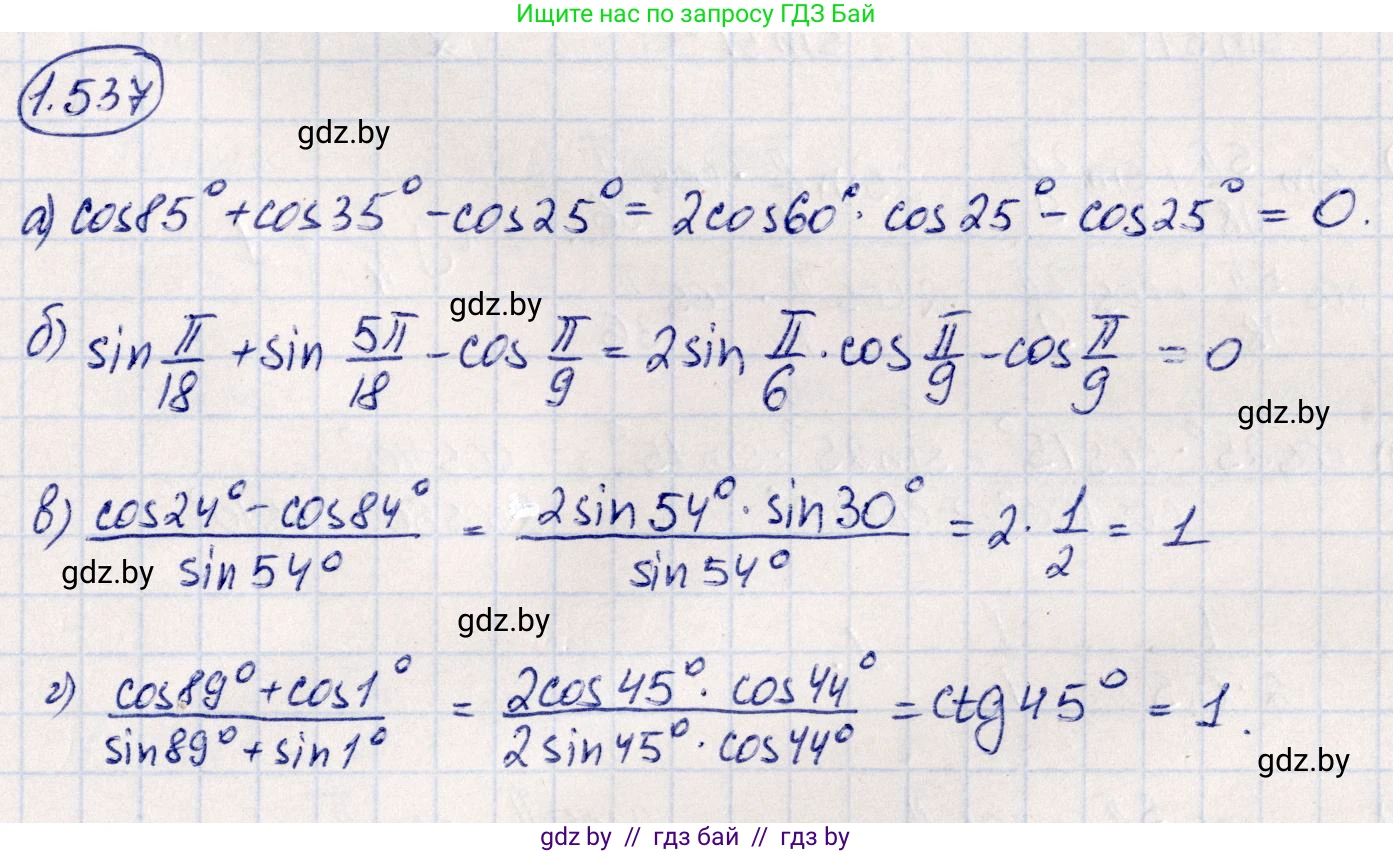 Ищите нас по запросу ГДЗ Бай
1.537
gdz.by
а) cos85° + cos35° - cos25° = 2cos60° · cos25° - cos25° = 0.
gdz.by
б) sin π/18 + sin 5π/18 - cos π/9 = 2sin π/6 · cos π/9 - cos π/9 = 0
gdz.by
в) (cos24° - cos84°)/(sin54°) = (2sin54° · sin30°)/(sin54°) = 2 · 1/2 = 1
gdz.by
gdz.by
г) (cos89° + cos1°)/(sin89° + sin1°) = (2cos45° · cos44°)/(2sin45° · cos44°) = ctg45° = 1.
gdz.by
gdz by // гдз бай // гдз by